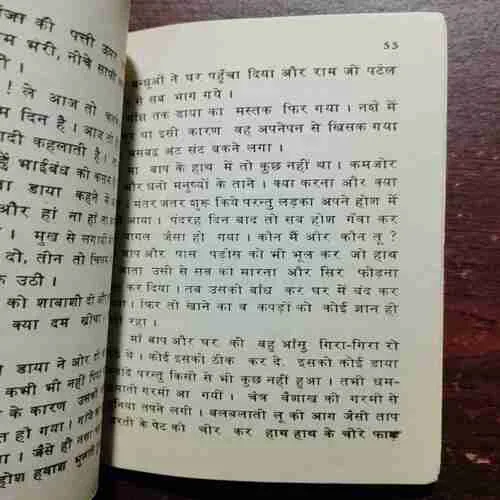 गंजा की पत्ती
म भरी, नीचे साफी
गी ।
! ले आज तो
म दिन है । आद तो
ादी कहलाती है ।
भाईबंध की कसम
डाया कहने से
और हां ना हां ना
। मुख से लगायी
दो, तीन तो चिलम
क उठी ।
को शाबाशी दी और
क्या दम खींचा
डाया ने ओर दो
कभी भी नहीं पिया
के कारण उसको
त हो गया । गांजे
। जैसे ही लगा
होश हवाश भुलाने
55
बन्धुओं ने घर पहुँचा दिया और राम जो पटेल
से सब भाग गये ।
तक डाया का मस्तक फिर गया । नशे में
था इसी कारण वह अपनेपन से खिसक गया
अंट संट बकने लगा ।
मां बाप के हाथ में तो कुछ नहीं था । कमजोर
और धनी मनुष्यों के ताने । क्या करना और क्या
मंतर जंतर शुरू किये परन्तु लड़का अपने होश में
आया । पंदरह दिन बाद तो सब होश गँवा कर
पागल जैसा हो गया । कौन मैं और कौन तू ?
बाप और पास पडोस को भी भूल कर जो हाथ
आता उसी से सब को मारना और सिर फोडना
कर दिया । तब उसको बाँध कर घर में बंद कर
। फिर तो खाने का व कपड़ों का कोई ज्ञान ही
रहा ।
माँ बाप और घर की वहु आँसु गिरा-गिरा रो
थे । कोई इसको ठीक कर दे. इसको कोई डाया
परन्तु किसी से भी कुछ नहीं हुआ । तभी धम-
गरमी आ गयी । चैत्र वैशाख की गरमी से
दुनिया तपने लगी । बलबलाती लू की आग जैसी ताप
धरती के पेट को चीर कर हाय हाय के चीरे फाड़